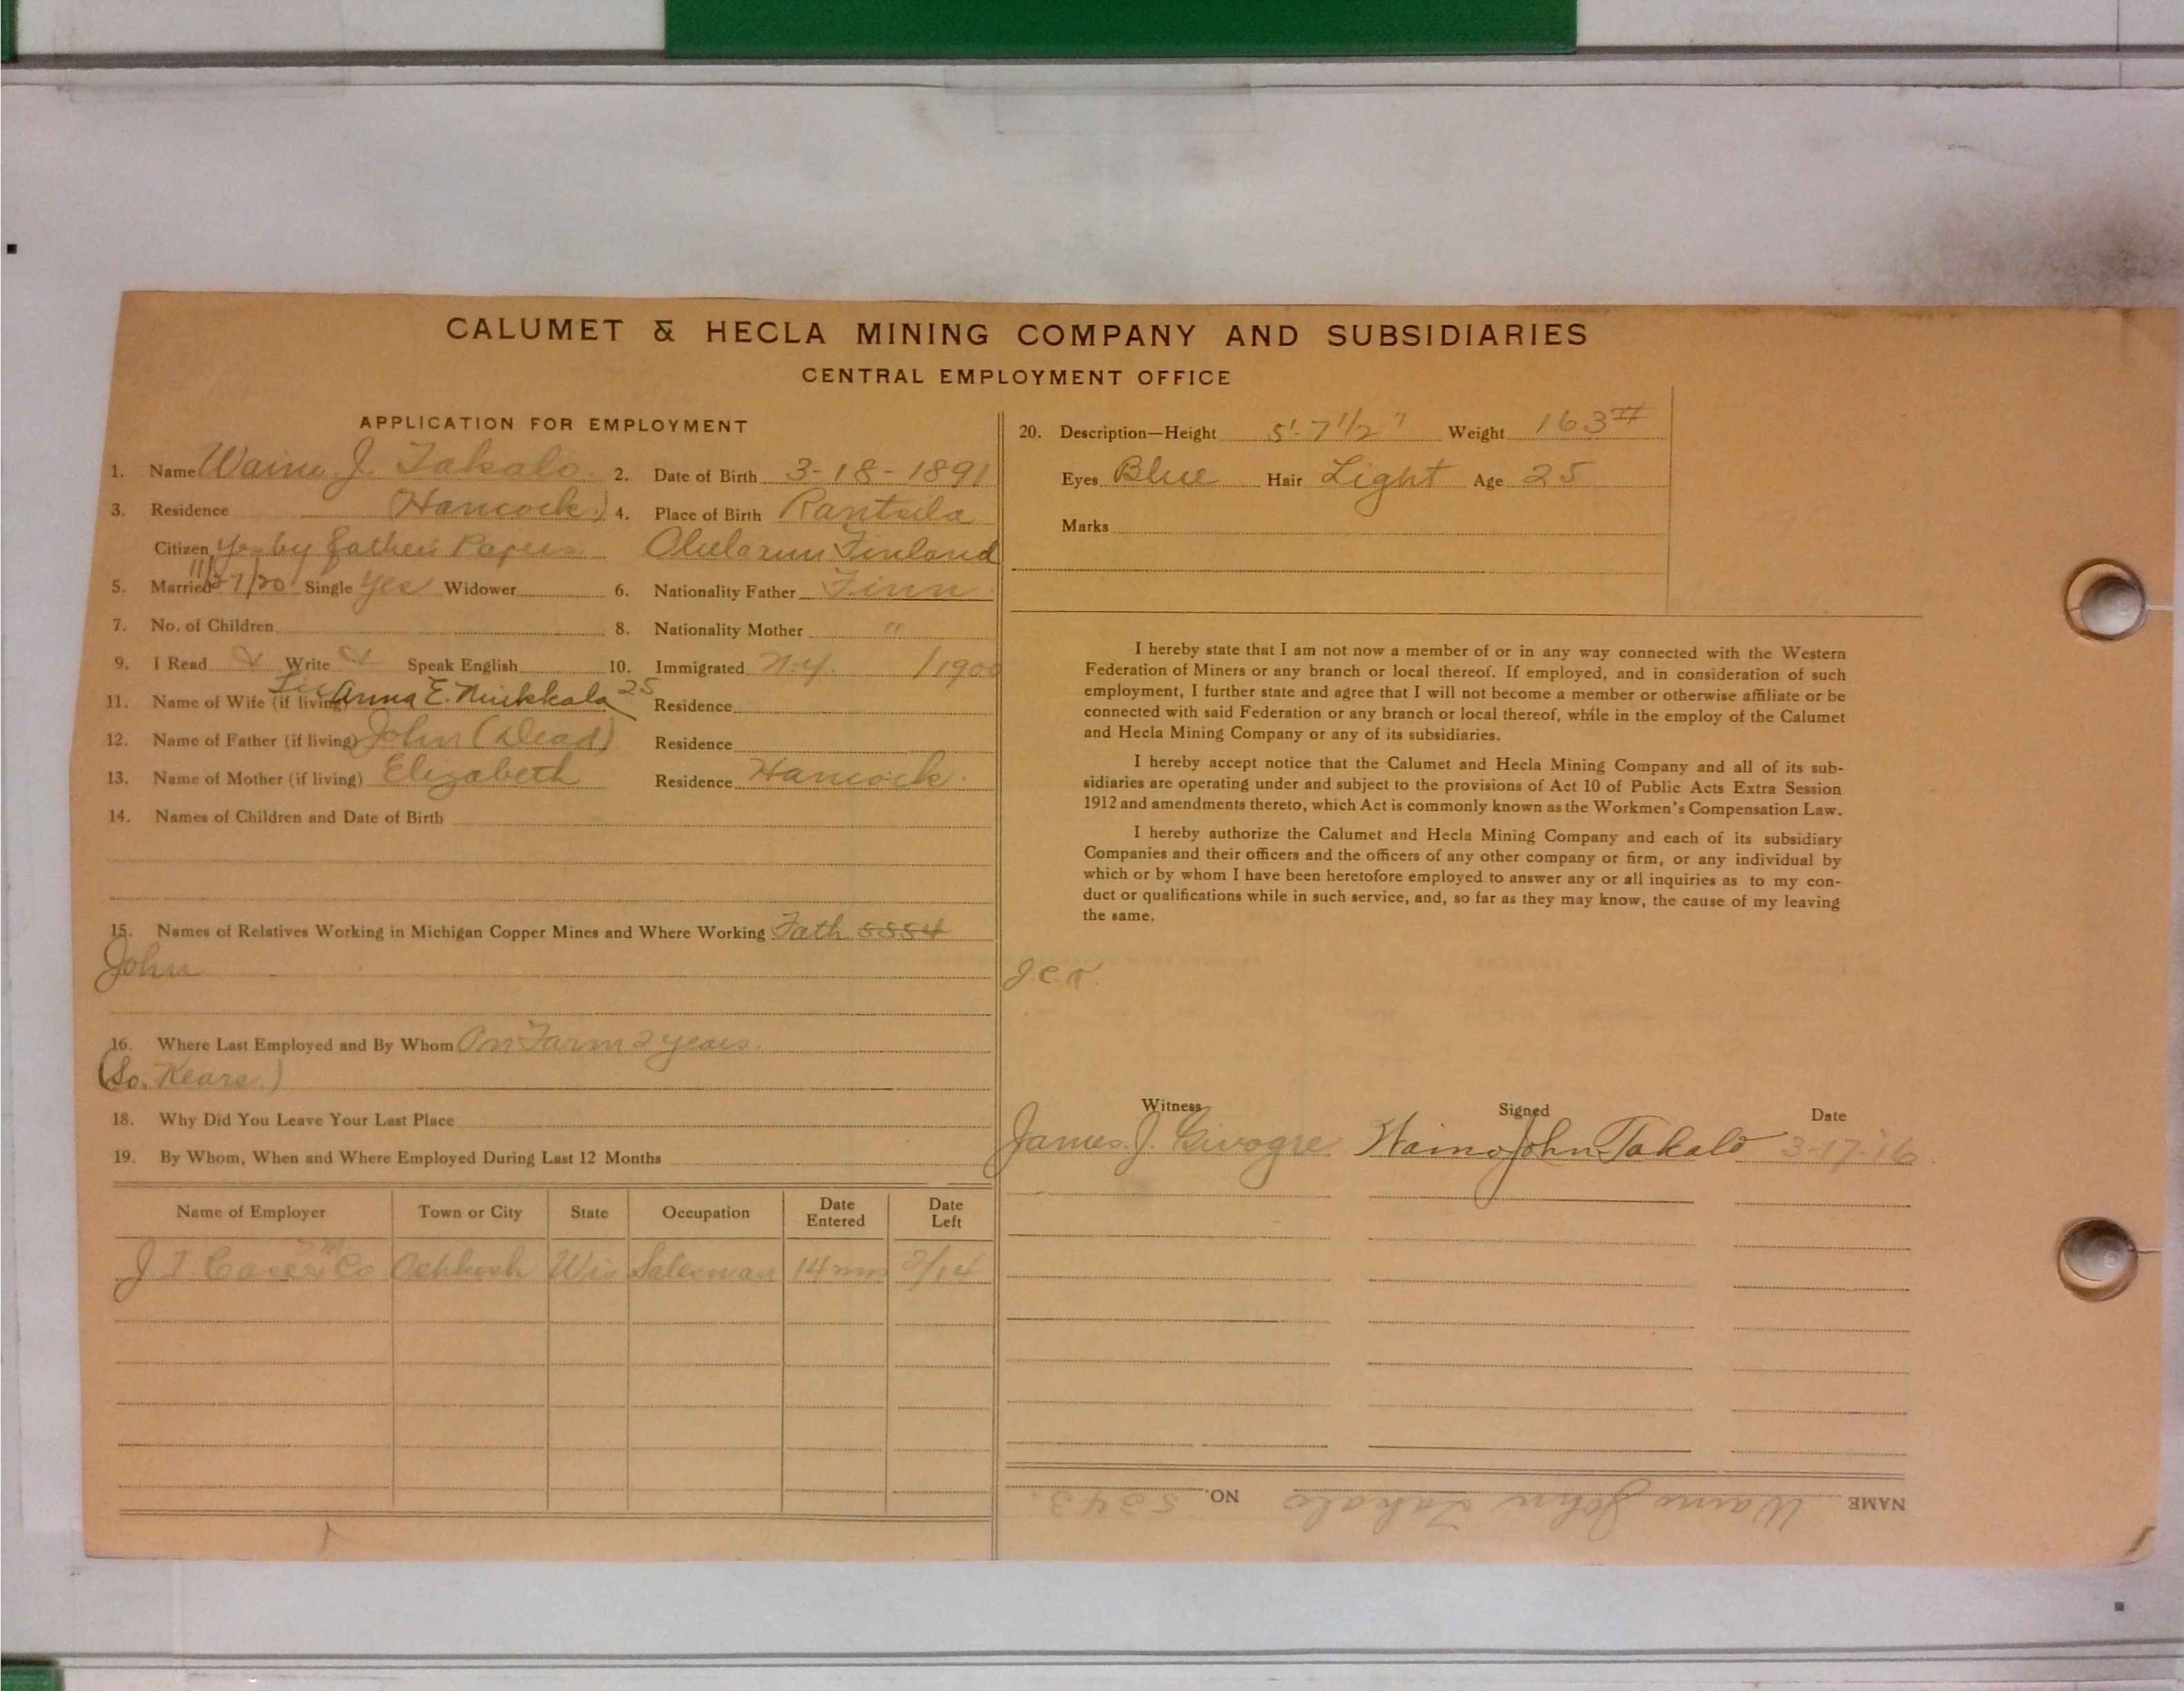 CALUMET & HECLA MINING COMPANY AND SUBSIDIARIES
CENTRAL EMPLOYMENT OFFICE
APPLICATION FOR EMPLOYMENT
1. Name Waino J. Takalo 2. Date of Birth 3-18-1891
3. Residence (Hancock) 4. Place of Birth Rantsila
Citizen Yes by Father's Papers. Finland
5. Married 11/27/20 Single Yes Widower 6. Nationality Father Finn
7. No. of Children 8. Nationality Mother "
9. I Read Write Speak English 10. Immigrated N.Y. /1900
11. Name of Wife (if living) Anna E. 25 Residence
12. Name of Father (if living) John (Dead) Residence
13. Name of Mother (if living) Elizabeth Residence Hancock.
14. Names of Children and Date of Birth
15. Names of Relatives Working in Michigan Copper Mines and Where Working Fath 5554
John
16. Where Last Employed and By Whom On Farm 2 years.
(So. Kears.)
18. Why Did You Leave Your Last Place
19. By Whom, When and Where Employed During Last 12 Months
Name of Employer Town or City State Occupation Date Entered Date Left
J I Case Co Oshkosh Wis Salesman 14 mos 2/14
20. Description—Height 5'-7 1/2" Weight 163#
Eyes Blue Hair Light Age 25
Marks
I hereby state that I am not now a member of or in any way connected with the Western
Federation of Miners or any branch or local thereof. If employed, and in consideration of such
employment, I further state and agree that I will not become a member or otherwise affiliate or be
connected with said Federation or any branch or local thereof, while in the employ of the Calumet
and Hecla Mining Company or any of its subsidiaries.
I hereby accept notice that the Calumet and Hecla Mining Company and all of its sub-
sidiaries are operating under and subject to the provisions of Act 10 of Public Acts Extra Session
1912 and amendments thereto, which Act is commonly known as the Workmen's Compensation Law.
I hereby authorize the Calumet and Hecla Mining Company and each of its subsidiary
Companies and their officers and the officers of any other company or firm, or any individual by
which or by whom I have been heretofore employed to answer any or all inquiries as to my con-
duct or qualifications while in such service, and, so far as they may know, the cause of my leaving
the same.
Witness Signed Date
James J. Waino John Takalo 3-17-'16
NAME Waino John Takalo NO. 5343.